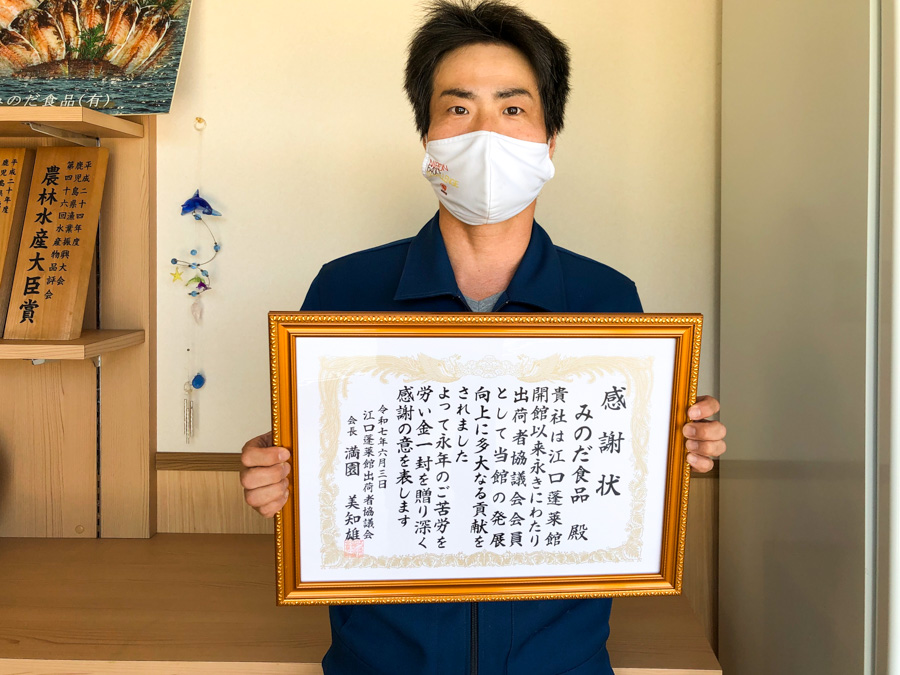 感謝状
みのだ食品 殿
貴社は江口蓬莱館
開館以来永きにわたり
出荷者協議会会員
として当館の発展
向上に多大なる貢献を
されました
よって永年のご苦労を
労い金一封を贈り深く
感謝の意を表します
令和七年六月三日
江口蓬莱館出荷者協議会
会長 満園 美知雄
みのだ食品(有)
平成二十四年度
鹿児島県漁業振興大会
第四十六回水産物品評会
農林水産大臣賞
平成二十年度